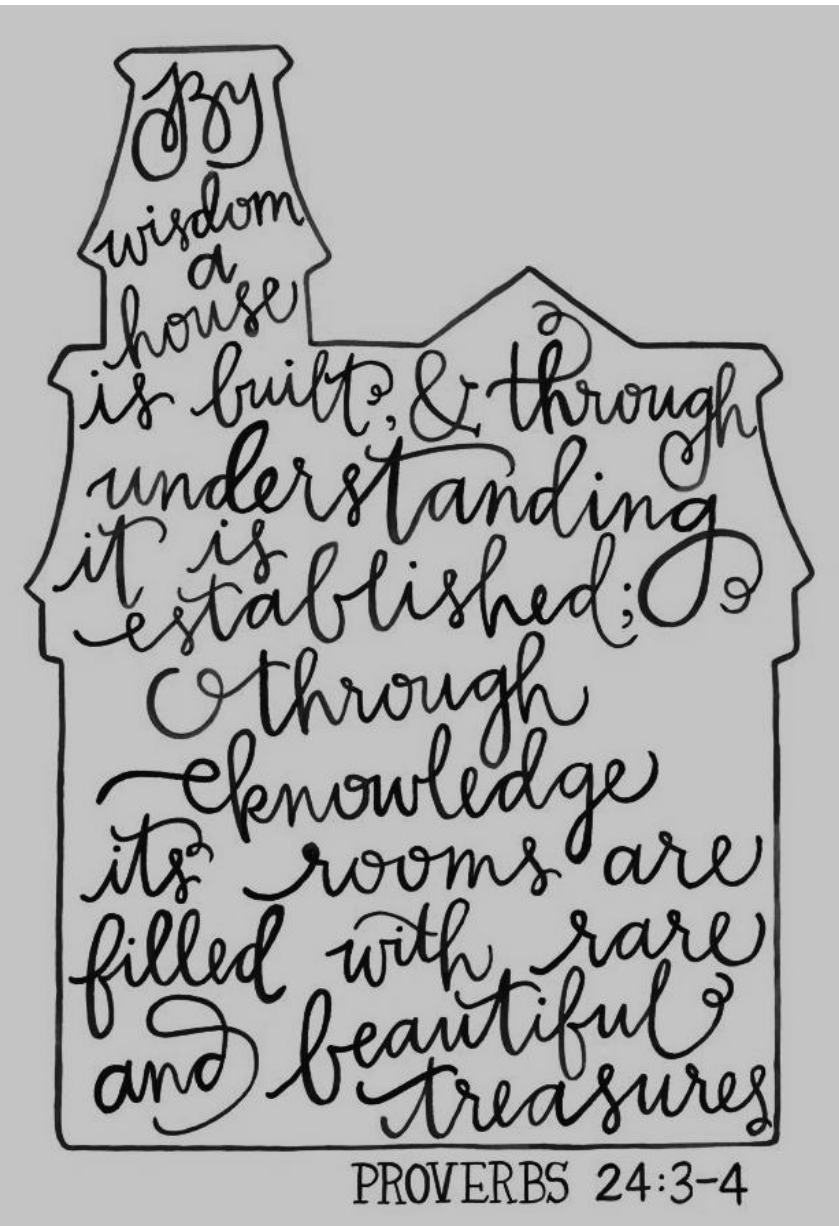 By
wisdom
a
house
is built, & through
understanding
it is
established;
through
knowledge
its rooms are
filled with rare
and beautiful
treasures
PROVERBS 24:3-4